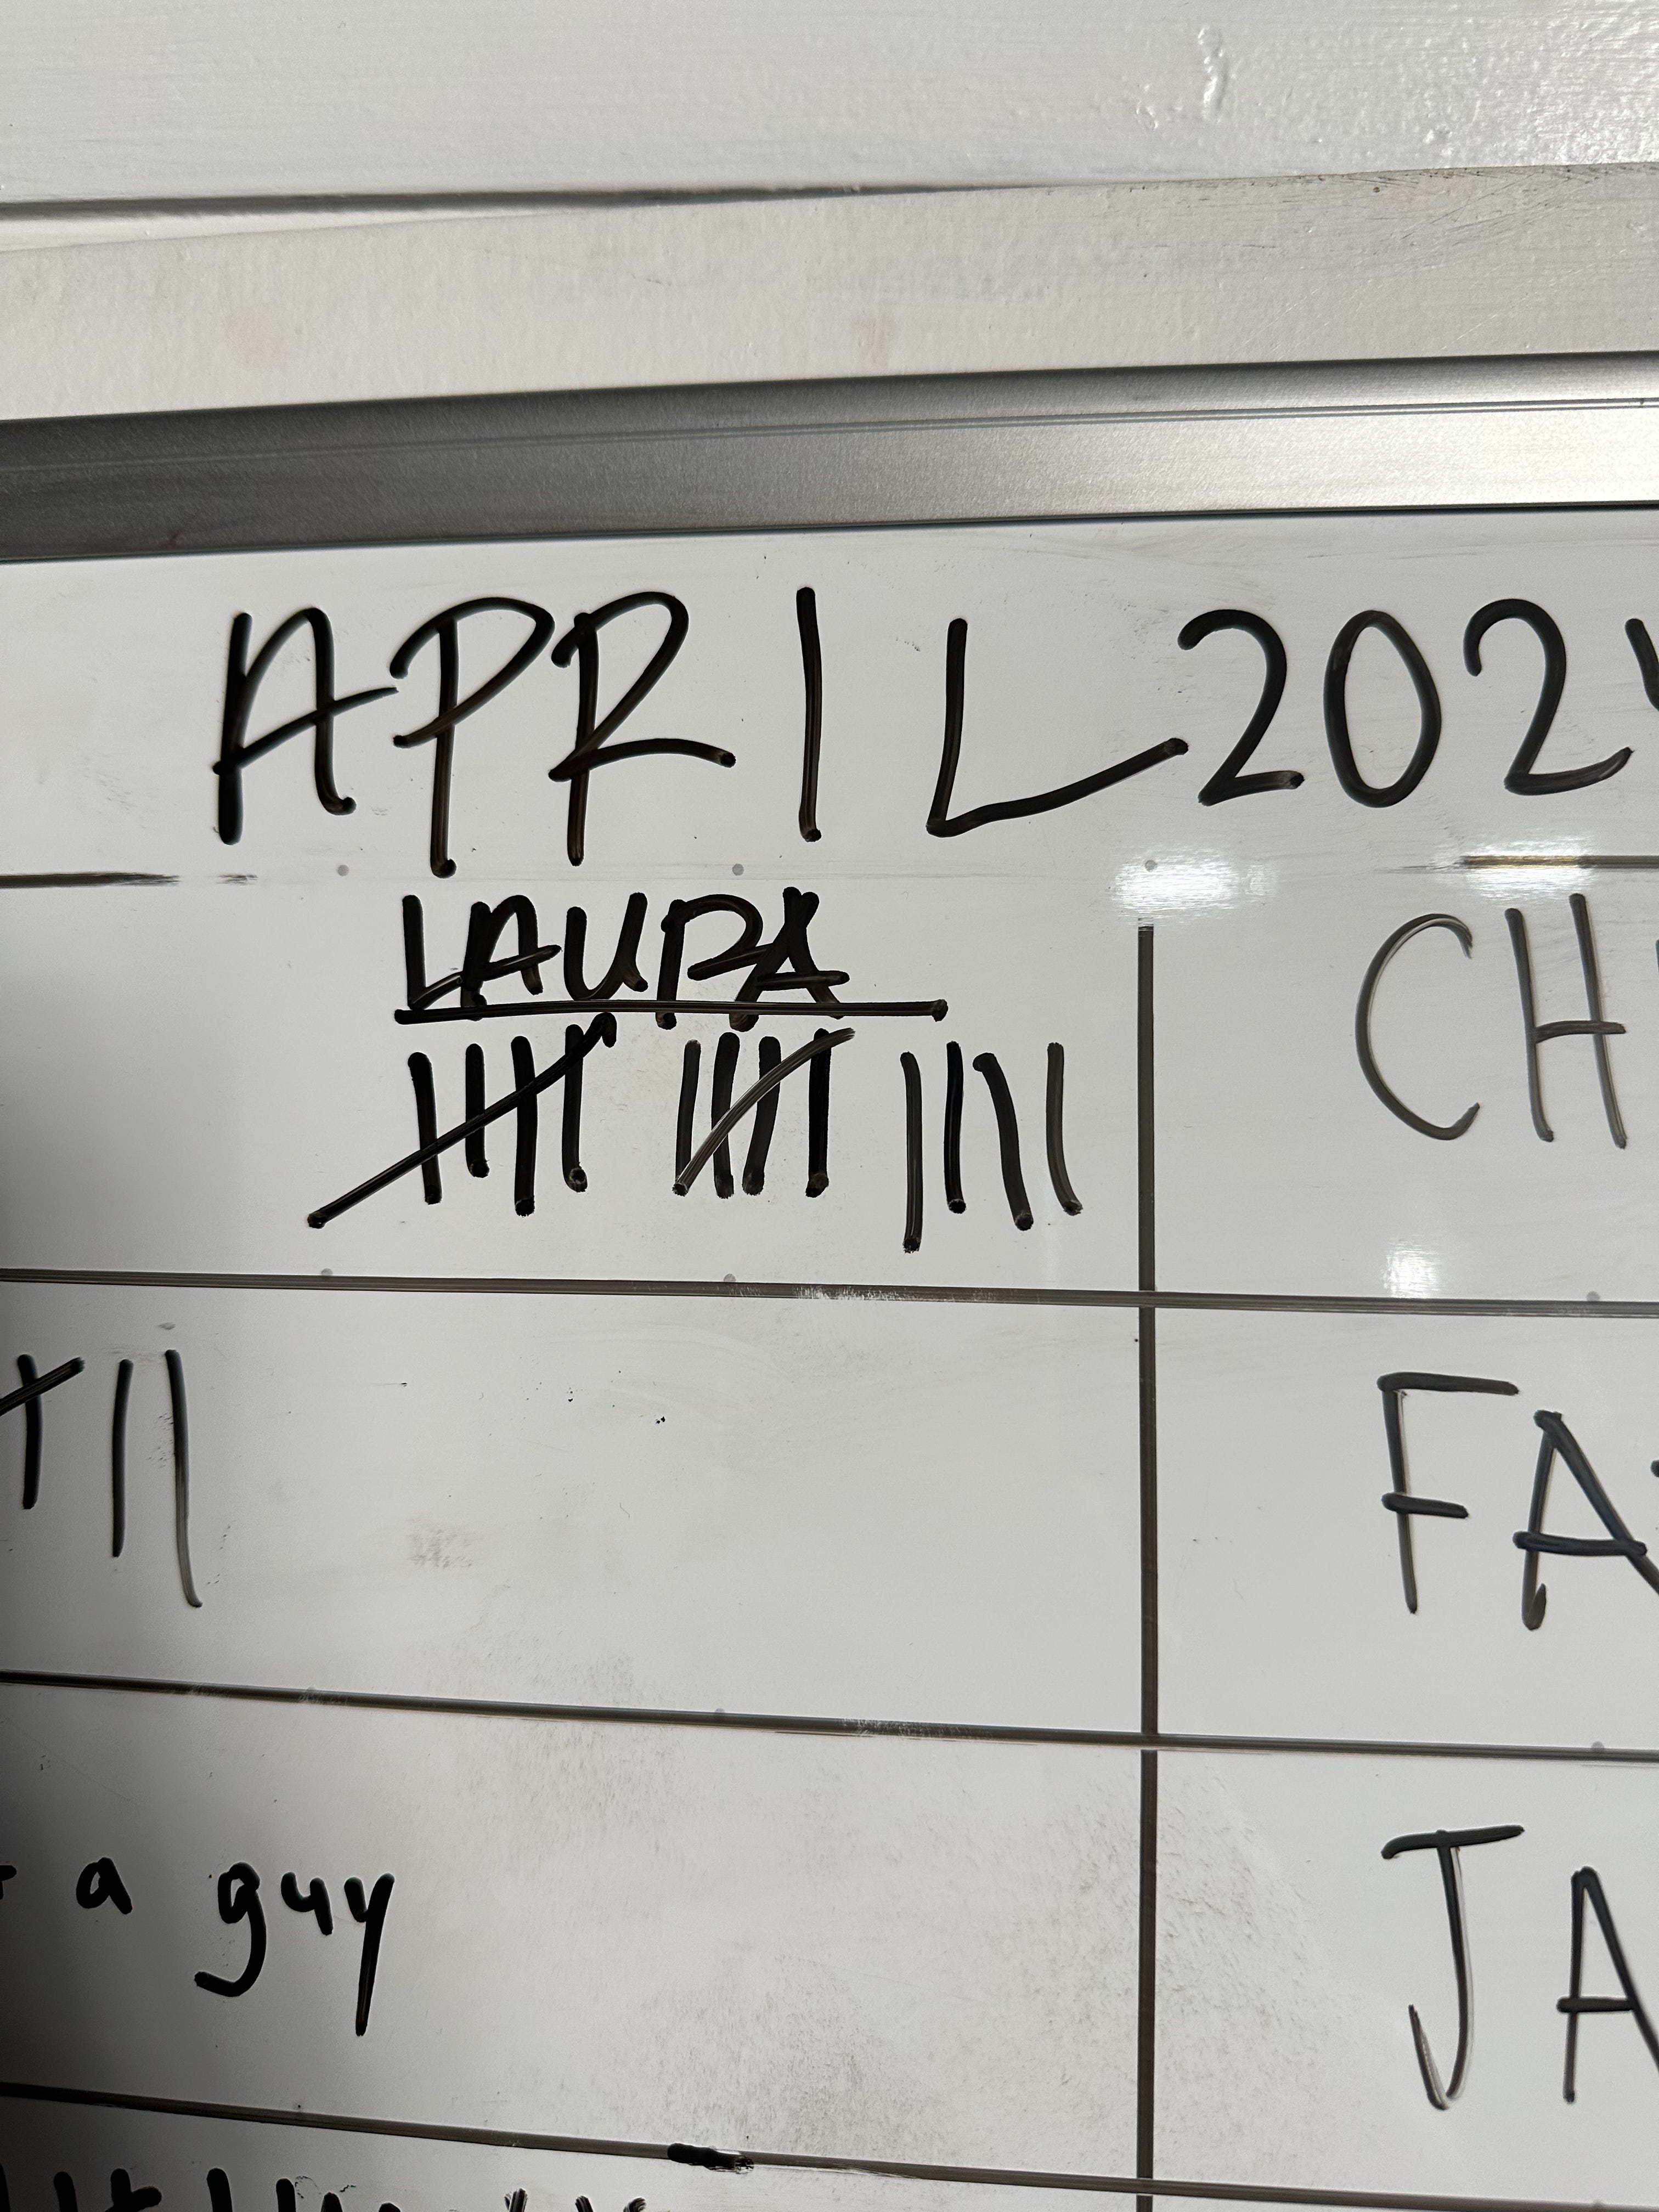 APRIL 202
LAURA
CH
FA
a guy
JA